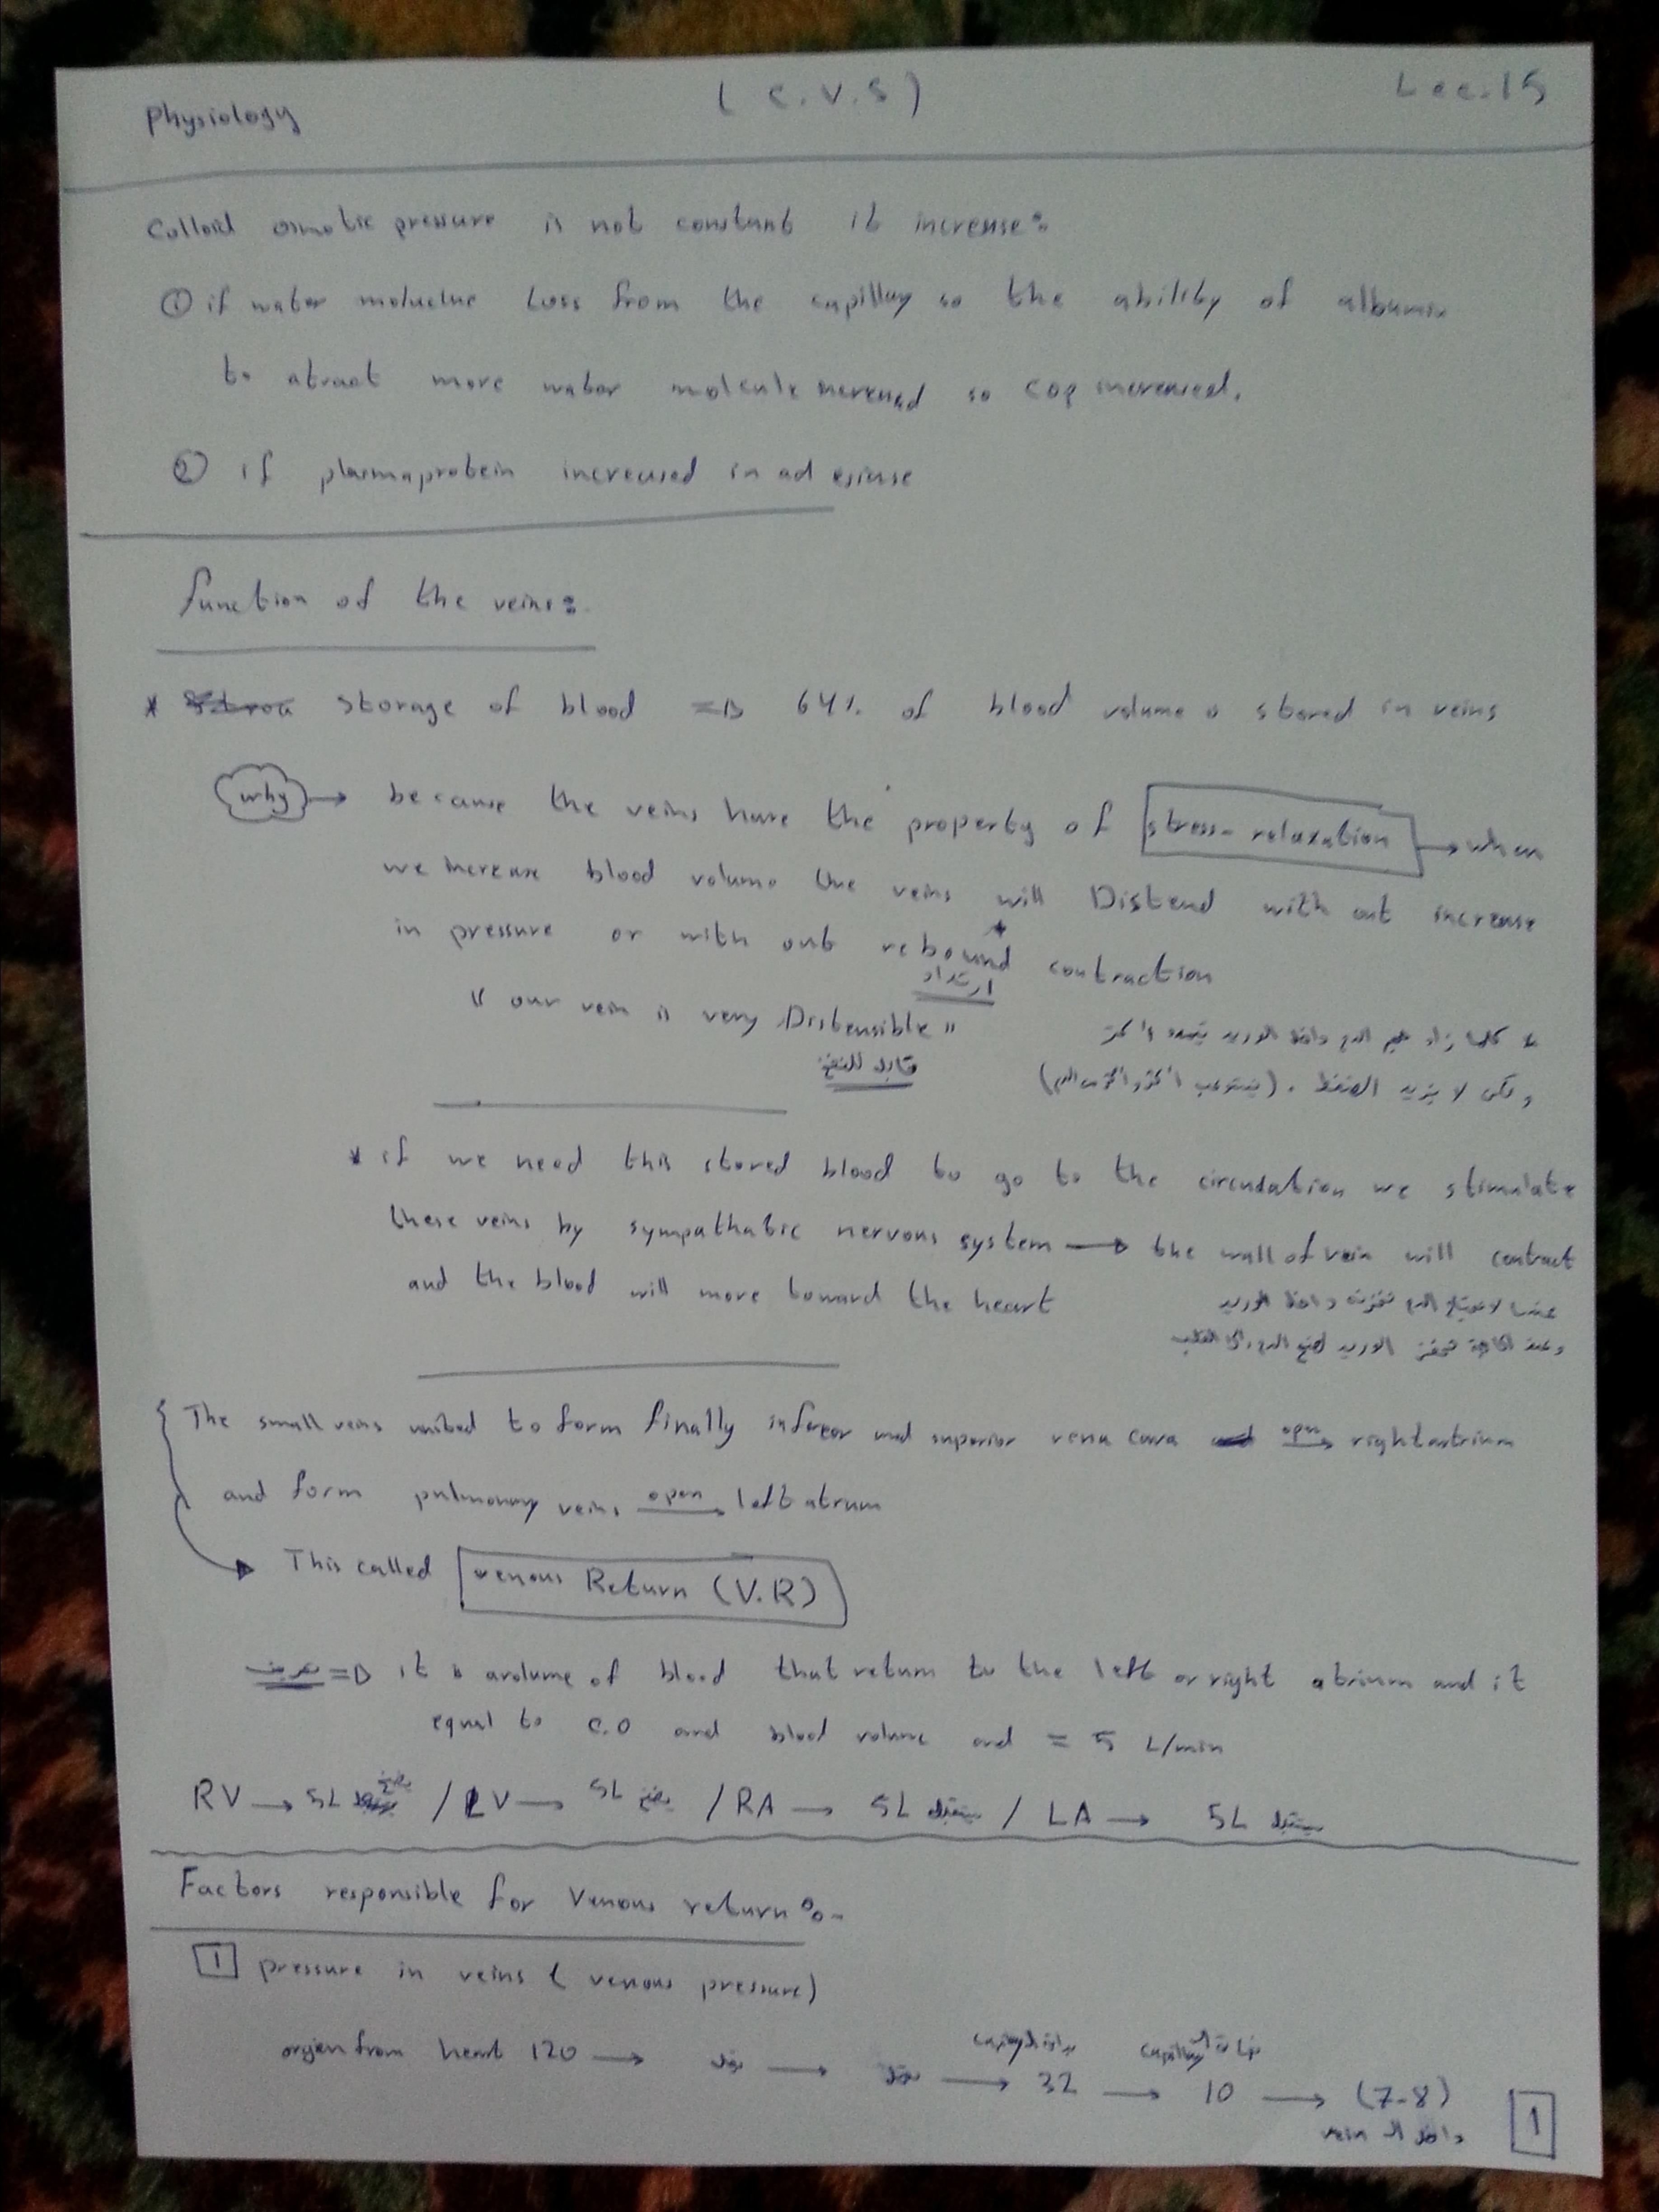 Physiology (C.V.S) Lec.15
Colloid osmotic pressure is not constant it increase:
① if water moluclue Loss from the capillay so the ability of albumin
to atract more water molcule increased so cop increased.
② if plasmaprotein increased in ad
function of the veins:
* storage of blood => 64% of blood volume is stored in veins
why → because the veins have the property of stress-relaxation → when
we increase blood volume the veins will Distend with out increase
in pressure or with out rebound* contraction
ارتداد
" our vein is very Distensible "
قابل للنفخ
* كلما زاد حجم الدم داخل الوريد يتمدد اكثر
ولكن لا يزيد الضغط . (يستوعب اكثر
* if we need this stored blood to go to the circulation we stimulate
these veins by sympathatic nervous system → the wall of vein will contract
and the blood will move toward the heart
عندما لا نحتاج الدم نخزنه داخل الوريد
وعند الحاجة نحفز الوريد لضخ الدم الى القلب
The small veins united to form finally inferior and superior vena cava open → right atrium
and form pulmonary veins open → left atrum
This called venous Return (V.R)
تعريف => it is avolume of blood that return to the left or right atrium and it
equal to C.O and blood volume and = 5 L/min
RV → 5L يضخ / LV → 5L يضخ / RA → 5L يستقبل / LA → 5L يستقبل
Factors responsible for Venous return:-
1 pressure in veins ( venous pressure)
capillary capillary
orgien from heart 120 → يقل → يقل → 32 → 10 → (7-8)
داخل ال vein
1